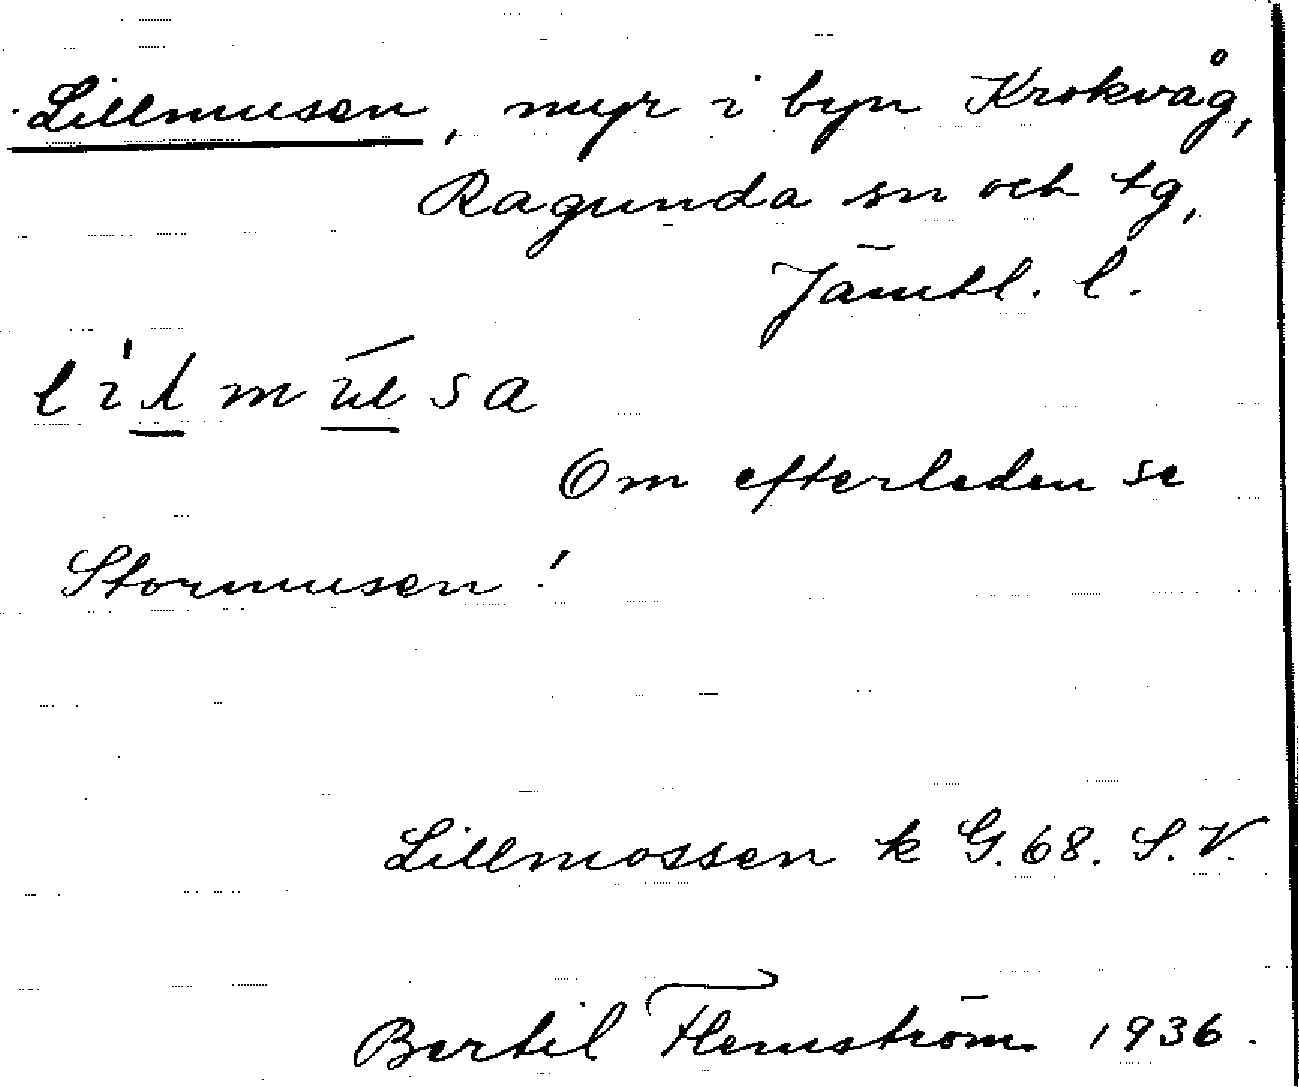 Lillmusen, myr i byn Krokvåg,
Ragunda sn och tg,
Jämtl. l.
Om efterleden se
Stormusen!
Lillmossen k G. 68. S.V.
Bertil Flemström 1936.